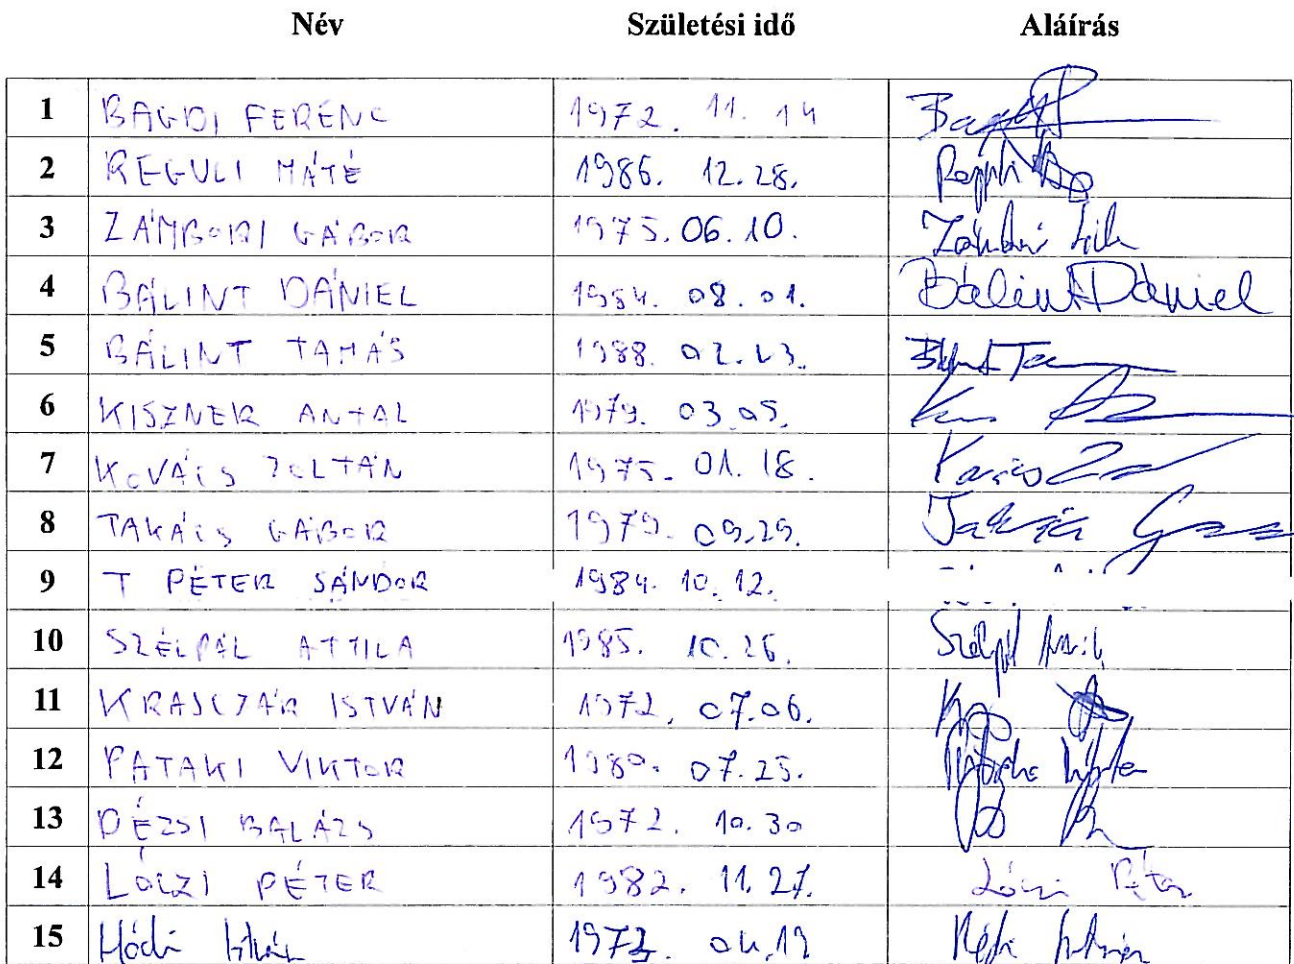 Név Születési idő Aláírás
1 BAGDI FERENC 1972. 11. 14
2 REGULI MÁTÉ 1986. 12.28.
3 ZÁMBORI GÁBOR 1975. 06. 10.
4 BÁLINT DÁNIEL 1984. 08. 01. Bálint Dániel
5 BÁLINT TAMÁS 1988. 02. 23.
6 KISZNER ANTAL 1979. 03.05.
7 KOVÁCS ZOLTÁN 1975. 01. 18. Kovács
8 TAKÁCS GÁBOR 1979. 09.29. Takács
9 T PÉTER SÁNDOR 1984. 10. 12.
10 SZÉLPÁL ATTILA 1985. 10. 26.
11 KRASCZÁR ISTVÁN 1972. 07.06.
12 PATAKI VIKTOR 1980. 07.25.
13 DÉZSI BALÁZS 1972. 10. 30
14 LÓCZI PÉTER 1982. 11. 27. Lóczi Péter
15 Hódi István 1972. 04.19